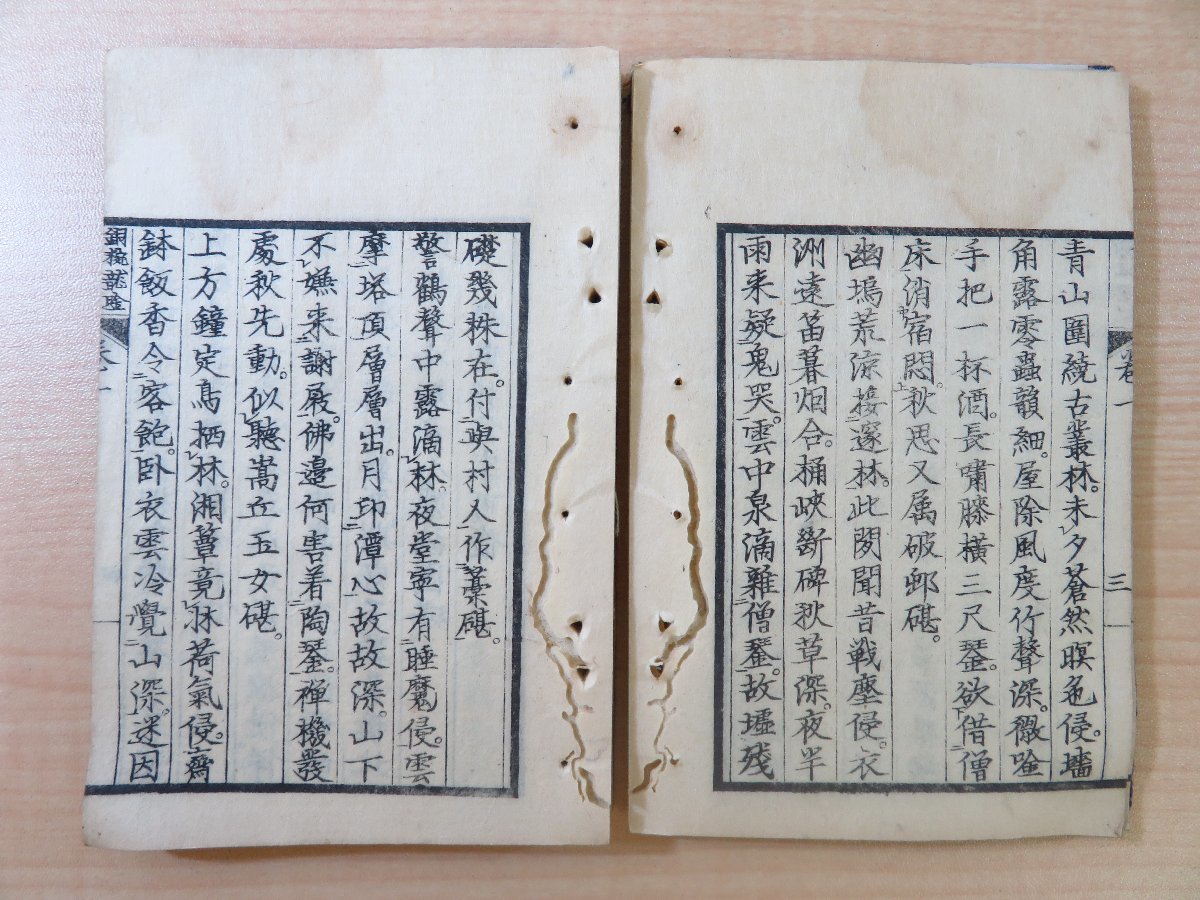 卷一
三
青山圍繞古叢林。未夕蒼然暝色侵。墻
角露零蟲韻細。屋除風度竹聲深。微吟
手把一杯酒。長嘯膝橫三尺琴。欲借僧
床消宿悶。秋思又属破邨碪。
幽塢荒涼接邃林。此閒聞昔戰塵侵。衣
洲遠笛暮烟合。桶峽斷碑秋草深。夜半
雨来疑鬼哭。雲中泉滴雜僧琴。故墟殘
礎幾株在。付與村人作藁碪。
警鶴聲中露滴林。夜堂寧有睡魔侵。雲
摩塔頂層層出。月印潭心故故深。山下
不嫌来謝屐。佛邊何害着陶琴。禅機發
處秋先動。似聽嵩丘玉女碪。
上方鐘定鳥栖林。湘簟竟牀荷氣侵。齋
鉢飯香令客飽。臥衣雲冷覺山深。迷因
銅椀龍唫
卷一